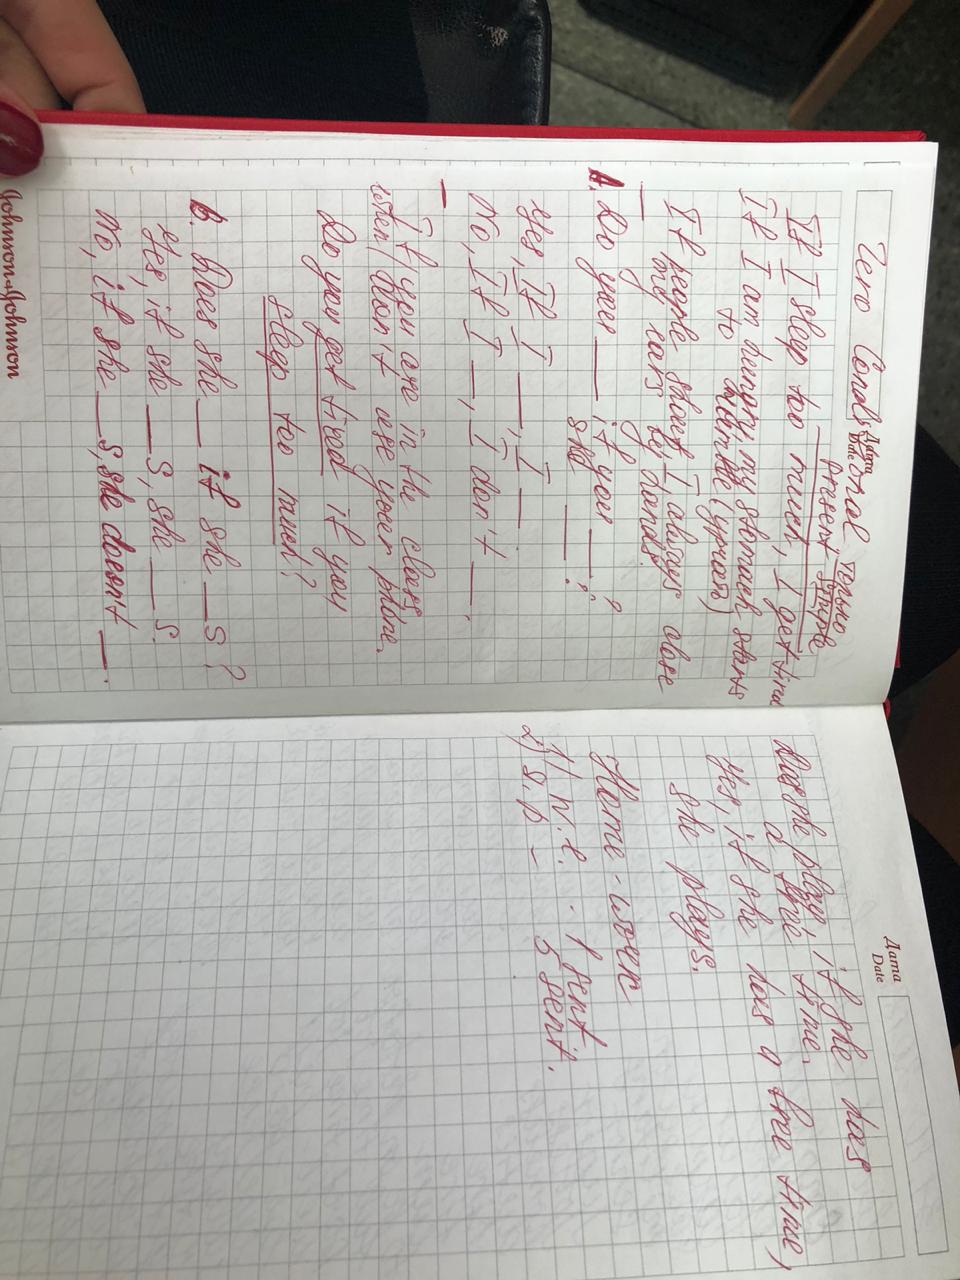 Дата
Date
Zero Conditional только
Present Simple
If I sleep too much, I get tired
If I am hungry, my stomach starts
to rumble (урчать)
If people shout, I always close
my ears by hands.
A. Do you ___ if you ___?
she ___?
Yes, If I ___, I ___.
No, If I ___, I don't ___.
If/ you are in the class,
when/ don't use your phone.
Do you get tired if you
sleep too much?
B. Does she ___ if she ___s?
Yes, if she ___s, she ___s.
No, if she ___s, she doesn't ___.
Johnson & Johnson
Дата
Date
Does she play, if she has
a free time.
Yes, if she has a free time,
she plays.
Home-work
1) w.l. - 1 sent.
2) s.p - 5 sent.